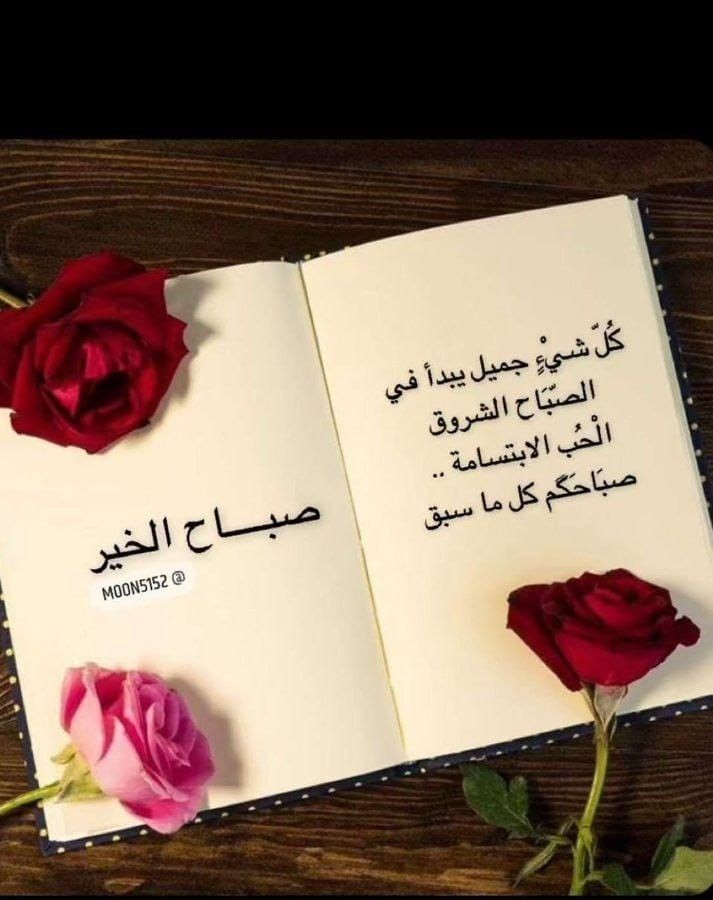 كُلّ شيءٍْ جميل يبدأ في
الصبّاح الشروق
الْحُب الابتسامة ..
صبَاحَكَم كل ما سبق
صبــاح الخير
MOON5152 @